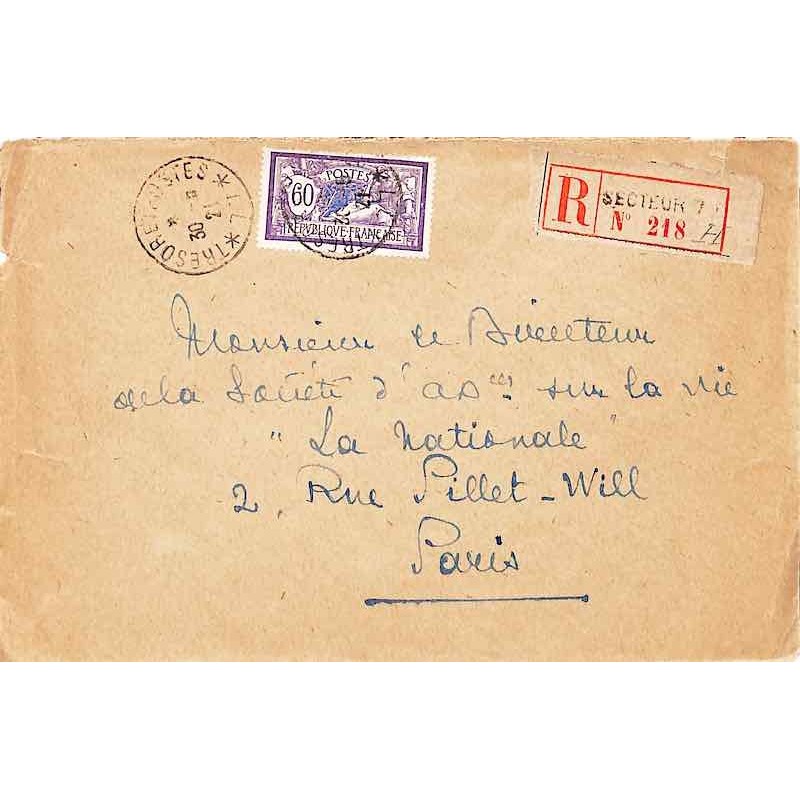 TRESOR ET POSTES
30
21
60
POSTES
REPUBLIQUE FRANÇAISE
R
SECTEUR 7
N° 218 H
Monsieur le Directeur
de la Société d'ass ces sur la vie
"La Nationale"
2, Rue Pillet-Will
Paris